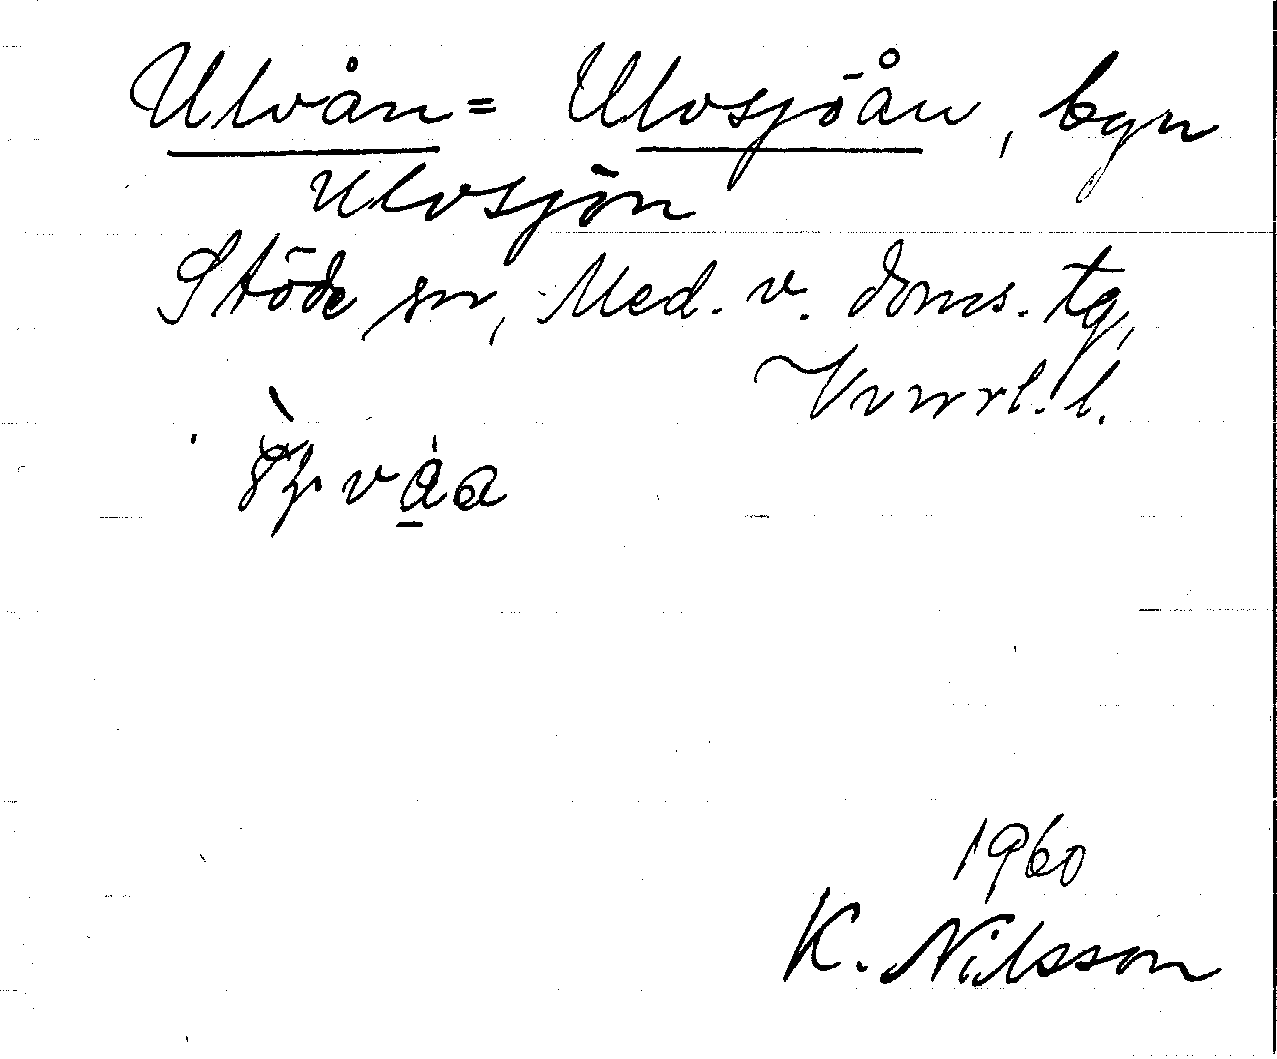 Ulvån = Ulvsjöån, byn
Ulvsjön
Stöde sn, Med. v. doms. tg,
Vnrrl. l.
1960
K. Nilsson